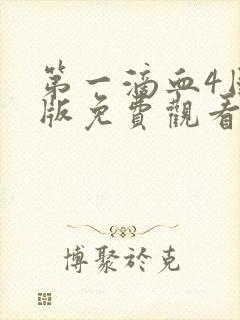 第一滴血4國
版免費觀看
博聚於克